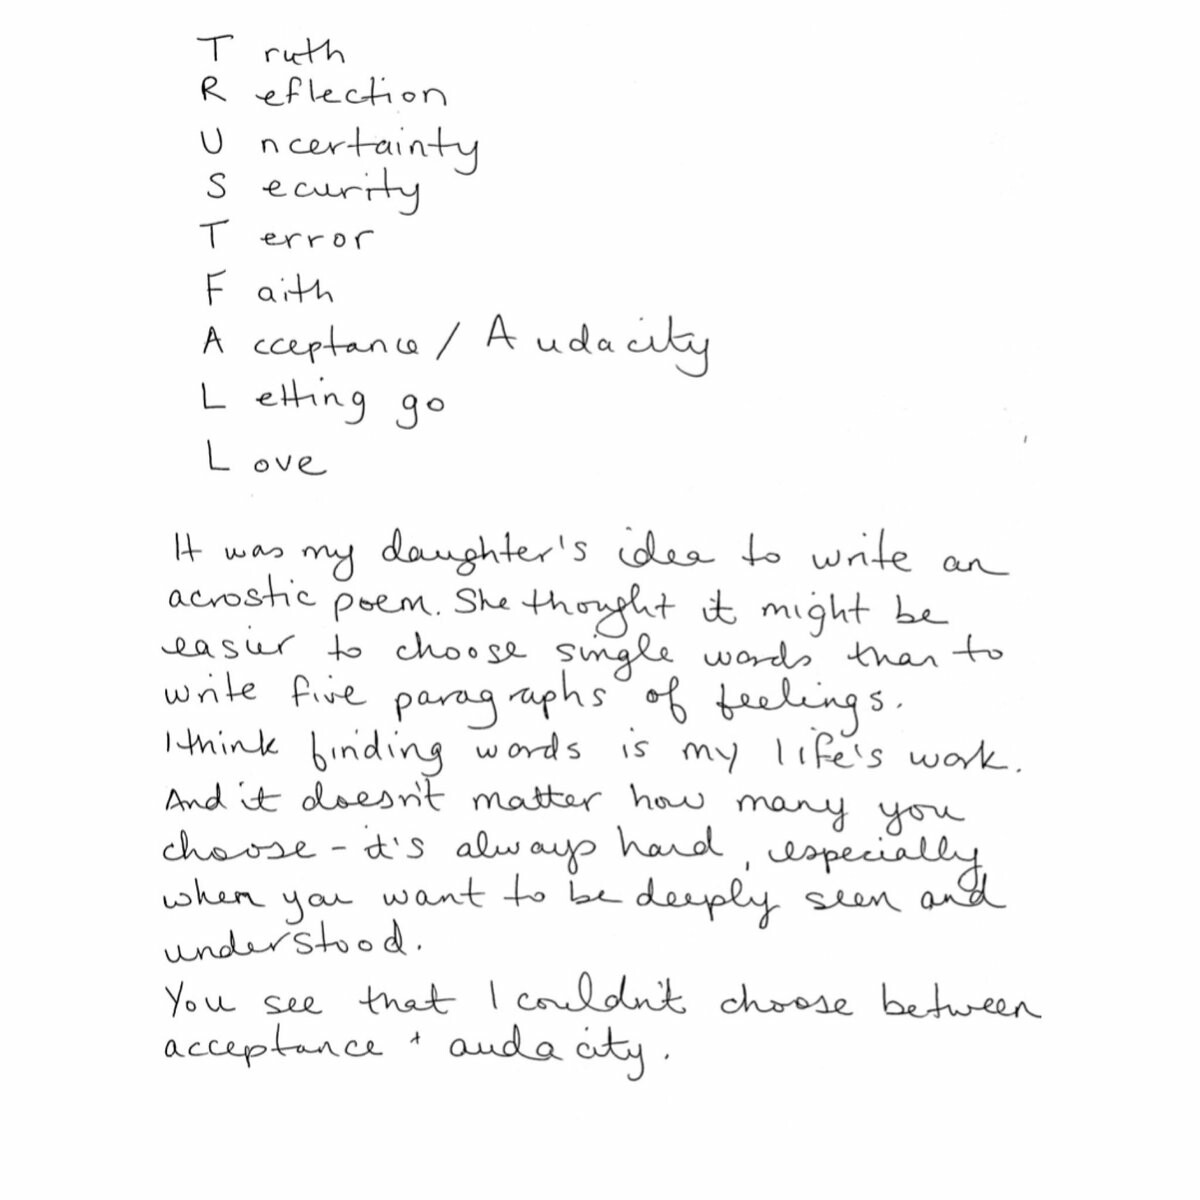 T ruth
R eflection
U ncertainty
S ecurity
T error
F aith
A cceptance / A udacity
L etting go
L ove
It was my daughter's idea to write an
acrostic poem. She thought it might be
easier to choose single words than to
write five paragraphs of feelings.
I think finding words is my life's work.
And it doesn't matter how many you
choose - it's always hard, especially
when you want to be deeply seen and
understood.
You see that I couldn't choose between
acceptance + audacity.